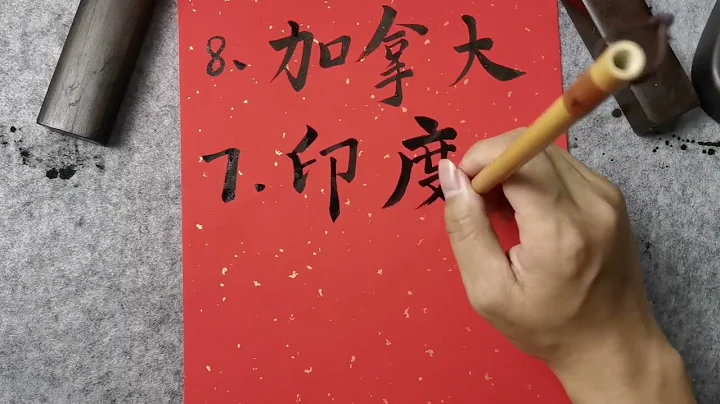 8、加拿大
7.印度